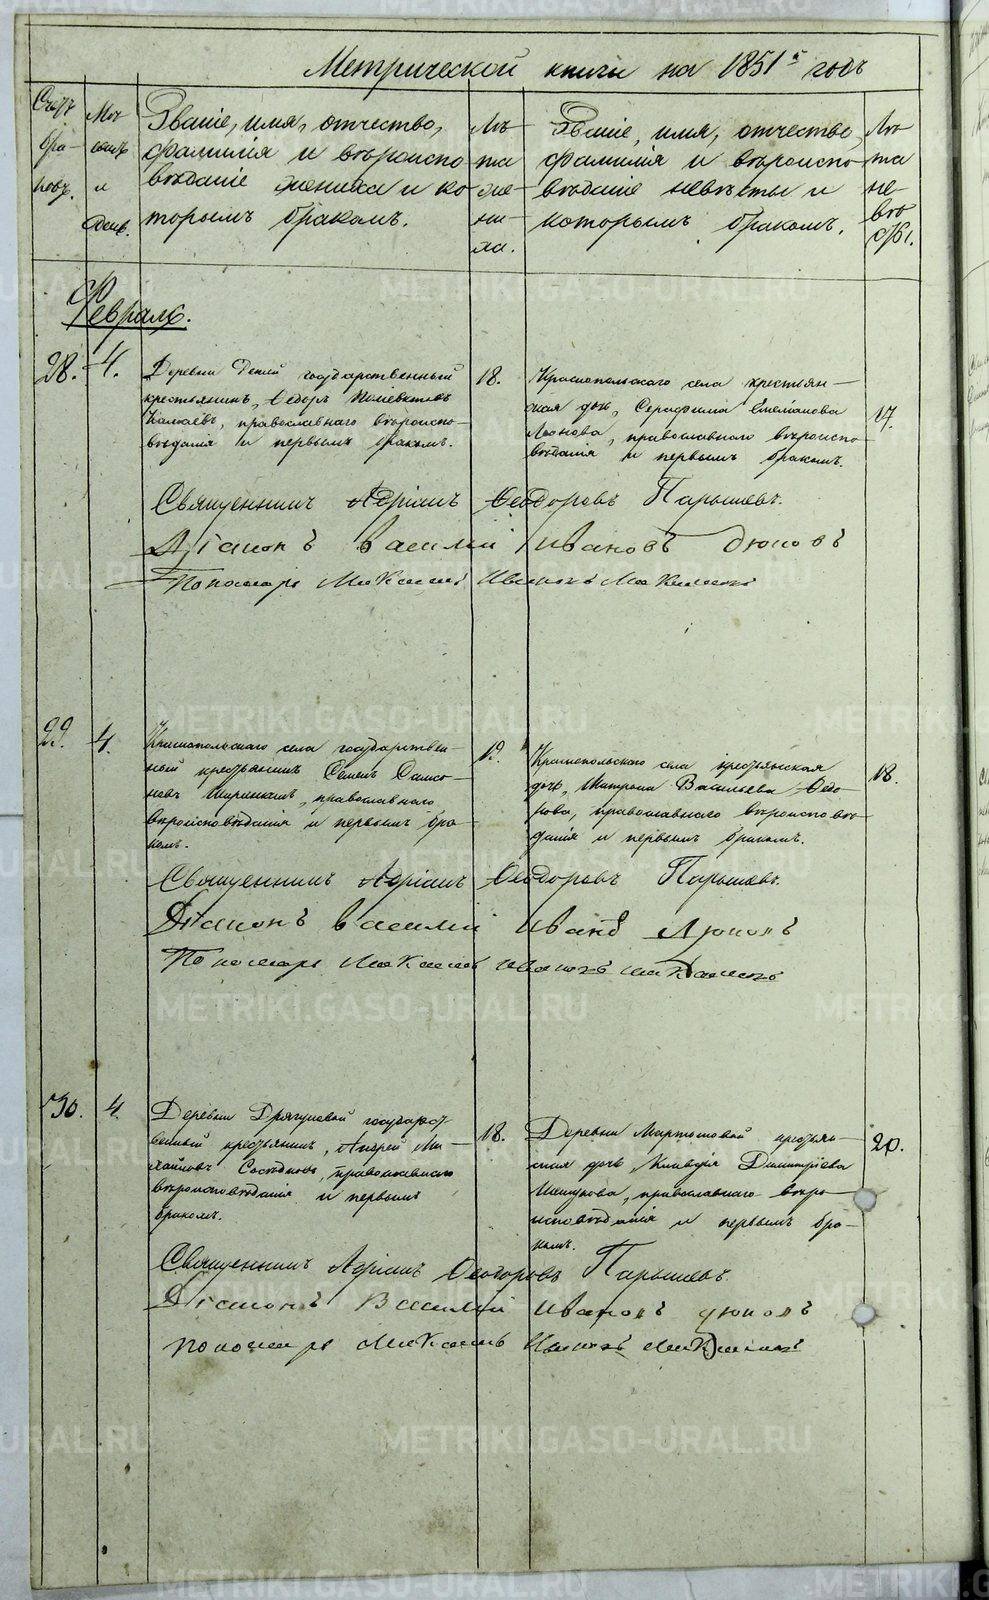 Метрической книги на 1851й годъ
Счетъ браковъ.
Мѣсяцъ и день.
Званіе, имя, отчество,
фамилія и вѣроиспо
вѣданіе жениха и ко
торымъ бракомъ.
Лѣ
та
же
ни
ха.
Званіе, имя, отчество,
фамилія и вѣроиспо
вѣданіе невѣсты и
которымъ бракомъ.
Лѣ
та
не
вѣ
сты.
Февраль.
28. 4.
Деревни государственный
крестьянинъ, Ѳедоръ
православнаго вѣроиспо-
вѣданія и первымъ бракомъ.
18.
Краснопольскаго села крестьян-
ская дочь, Серафима Емелианова
Леонова, православнаго вѣроиспо-
вѣданія и первымъ бракомъ.
17.
Священникъ Адріанъ Ѳеодоровъ Парышевъ.
Діаконъ Василій Ивановъ
Пономарь Иванъ
29. 4.
Краснопольскаго села государствен-
ный крестьянинъ Семенъ Самсо-
новъ православнаго
вѣроисповѣданія и первымъ бра-
комъ.
19.
Краснопольскаго села крестьянская
дочь, Матрона Васильева Ѳедо-
рова, православнаго вѣроисповѣ-
данія и первымъ бракомъ.
18.
Священникъ Адріанъ Ѳеодоровъ Парышевъ.
Діаконъ Василій Ивановъ
Пономарь
30. 4.
Деревни Дрягуновой государст
венный крестьянинъ, Андрей Ми-
хайловъ православнаго
вѣроисповѣданія и первымъ
бракомъ.
18.
Деревни Мартюшовой крестьян-
ская дочь, Клавдія Димитріева
православнаго вѣро-
исповѣданія и первымъ бра-
комъ.
20.
Священникъ Адріанъ Ѳеодоровъ Парышевъ.
Діаконъ Василій Ивановъ
Пономарь
METRIKI.GASO-URAL.RU